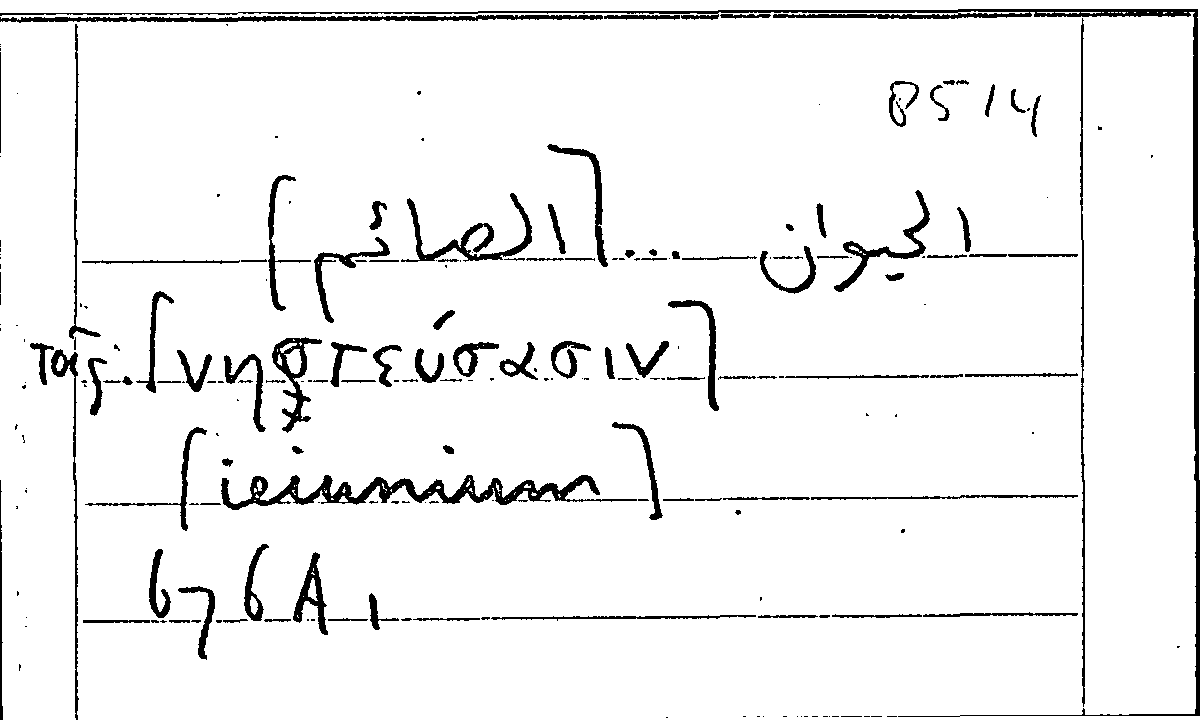 8514
الحيوان ... [الصائم]
ταῖς. [νηστεύσασιν]
[ieiunium]
676A1